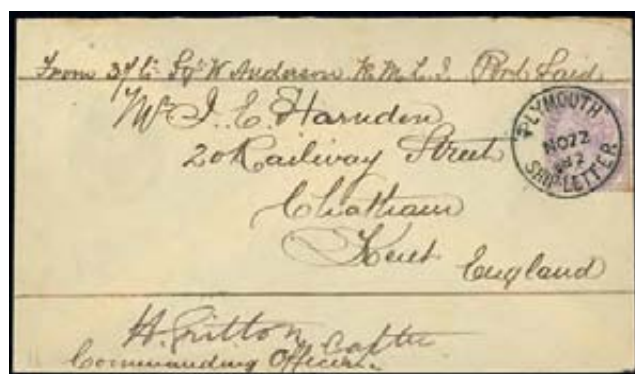 From Sgt W Anderson R.M.L.I. Port Said
Mr J. E. Harnden
20 Railway Street
Chatham
Kent
England
PLYMOUTH
NO 22
82
SHIP-LETTER
H. Gritton Captn
Commanding Officer.